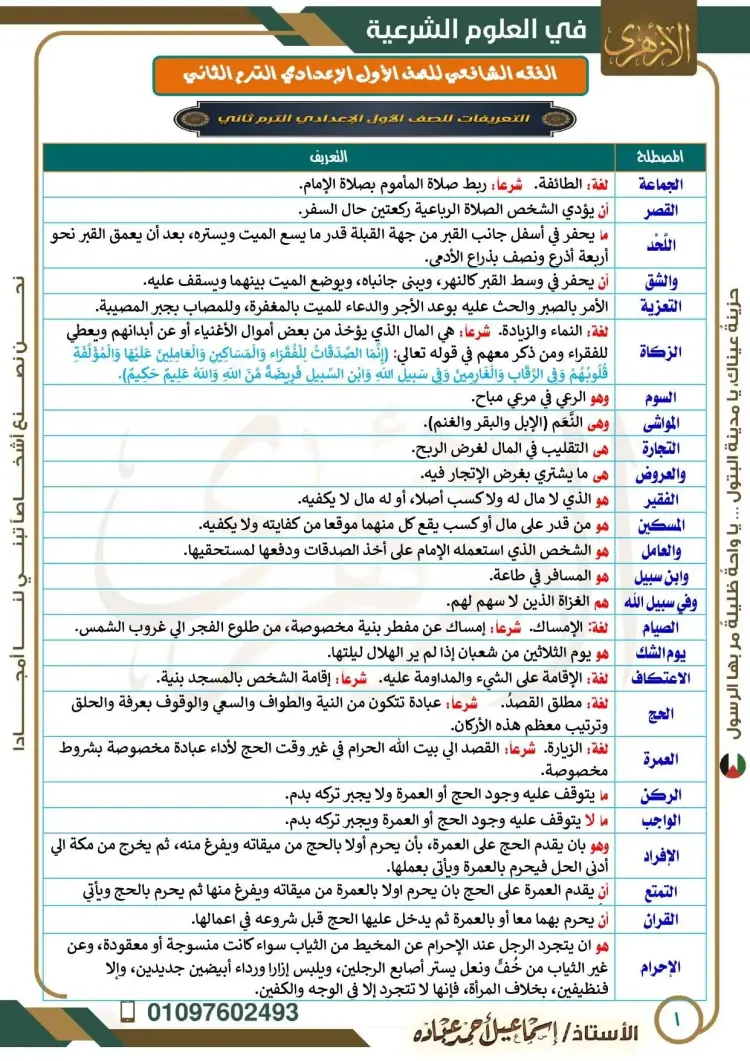 الأزهري
في العلوم الشرعية
الفقه الشافعي للصف الأول الإعدادي الترم الثاني
التعريفات للصف الاول الإعدادي الترم ثاني
المصطلح التعريف
الجماعة لغة: الطائفة. شرعا: ربط صلاة المأموم بصلاة الإمام.
القصر أن يؤدي الشخص الصلاة الرباعية ركعتين حال السفر.
اللَّحْد ما يحفر في أسفل جانب القبر من جهة القبلة قدر ما يسع الميت ويستره، بعد أن يعمق القبر نحو
أربعة أذرع ونصف بذراع الأدمي.
والشق أن يحفر في وسط القبر كالنهر، ويبنى جانباه، ويوضع الميت بينهما ويسقف عليه.
التعزية الأمر بالصبر والحث عليه بوعد الأجر والدعاء للميت بالمغفرة، وللمصاب بجبر المصيبة.
الزكاة لغة: النماء والزيادة. شرعا: هي المال الذي يؤخذ من بعض أموال الأغنياء أو عن أبدانهم ويعطي
للفقراء ومن ذكر معهم في قوله تعالي: (إِنَّمَا الصَّدَقَاتُ لِلْفُقَرَاء وَالْمَسَاكِينِ وَالْعَامِلِينَ عَلَيْهَا وَالْمُؤَلَّفَةِ
قُلُوبُهُمْ وَفِي الرِّقَابِ وَالْغَارِمِينَ وَفِي سَبِيلِ اللهِ وَابْنِ السَّبِيلِ فَرِيضَةً مِّنَ اللهِ وَاللهُ عَلِيمٌ حَكِيمٌ).
السوم وهو الرعي في مرعي مباح.
المواشى وهى النَّعَم (الإبل والبقر والغنم).
التجارة هى التقليب في المال لغرض الربح.
والعروض هى ما يشتري بغرض الإتجار فيه.
الفقير هو الذي لا مال له ولا كسب أصلا، أو له مال لا يكفيه.
المسكين هو من قدر على مال أو كسب يقع كل منهما موقعا من كفايته ولا يكفيه.
والعامل هو الشخص الذي استعمله الإمام على أخذ الصدقات ودفعها لمستحقيها.
وابن سبيل هو المسافر في طاعة.
وفي سبيل الله هم الغزاة الذين لا سهم لهم.
الصيام لغة: الإمساك. شرعا: إمساك عن مفطر بنية مخصوصة، من طلوع الفجر الي غروب الشمس.
يوم الشك هو يوم الثلاثين من شعبان إذا لم ير الهلال ليلتها.
الاعتكاف لغة: الإقامة على الشيء والمداومة عليه. شرعا: إقامة الشخص بالمسجد بنية.
الحج لغة: مطلق القصدُ. شرعا: عبادة تتكون من النية والطواف والسعي والوقوف بعرفة والحلق
وترتيب معظم هذه الأركان.
العمرة لغة: الزيارة. شرعا: القصد الي بيت الله الحرام في غير وقت الحج لأداء عبادة مخصوصة بشروط
مخصوصة.
الركن ما يتوقف عليه وجود الحج أو العمرة ولا يجبر تركه بدم.
الواجب ما لا يتوقف عليه وجود الحج أو العمرة ويجبر تركه بدم.
الإفراد وهو بان يقدم الحج على العمرة، بأن يحرم أولا بالحج من ميقاته ويفرغ منه، ثم يخرج من مكة الي
أدنى الحل فيحرم بالعمرة ويأتي بعملها.
التمتع أن يقدم العمرة على الحج بان يحرم اولا بالعمرة من ميقاته ويفرغ منها ثم يحرم بالحج ويأتي
القران أن يحرم بهما معا أو بالعمرة ثم يدخل عليها الحج قبل شروعه في اعمالها.
الإحرام هو ان يتجرد الرجل عند الإحرام عن المخيط من الثياب سواء كانت منسوجة أو معقودة، وعن
غير الثياب من خُفٍّ ونعل يستر أصابع الرجلين، ويلبس إزارا ورداء أبيضين جديدين، وإلا
فنظيفين، بخلاف المرأة، فإنها لا تتجرد إلا في الوجه والكفين.
حزينةٌ عيناك، يا مدينة البتول ... يا واحةً ظليلةً مر بها الرسول
نحن نصنع أشخاصا تبني لنا أمجادا
١
الأستاذ/ إسماعيل أحمد عباده
01097602493